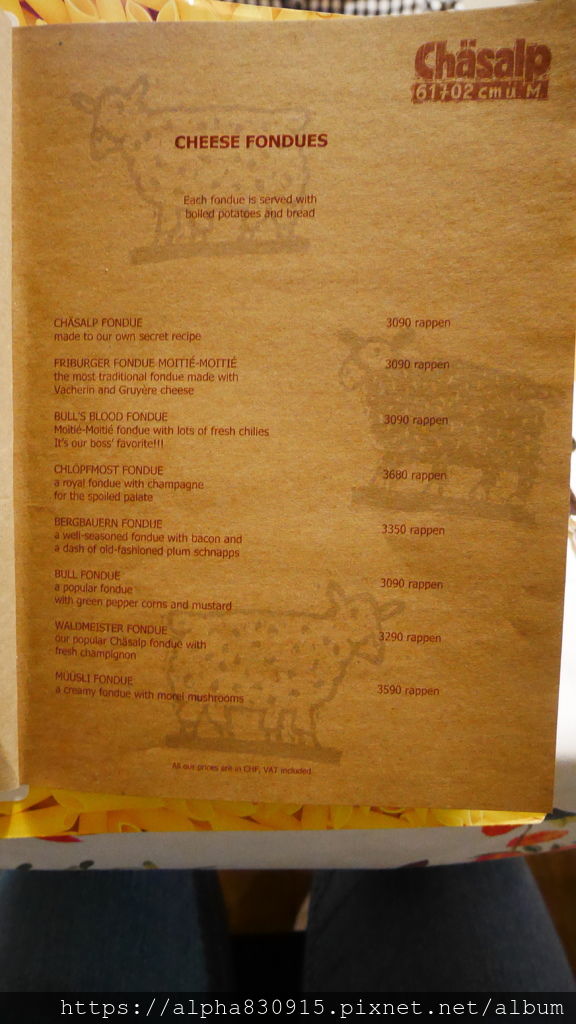 Chäsalp
61702 cm ü M
CHEESE FONDUES
Each fondue is served with
boiled potatoes and bread
CHÄSALP FONDUE 3090 rappen
made to our own secret recipe
FRIBURGER FONDUE MOITIÉ-MOITIÉ 3090 rappen
the most traditional fondue made with
Vacherin and Gruyère cheese
BULL'S BLOOD FONDUE 3090 rappen
Moitié-Moitié fondue with lots of fresh chilies
It's our boss' favorite!!!
CHLÖPFMOST FONDUE 3680 rappen
a royal fondue with champagne
for the spoiled palate
BERGBAUERN FONDUE 3350 rappen
a well-seasoned fondue with bacon and
a dash of old-fashioned plum schnapps
BULL FONDUE 3090 rappen
a popular fondue
with green pepper corns and mustard
WALDMEISTER FONDUE 3290 rappen
our popular Chäsalp fondue with
fresh champignon
MÜÜSLI FONDUE 3590 rappen
a creamy fondue with morel mushrooms
All our prices are in CHF, VAT included
https://alpha830915.pixnet.net/album